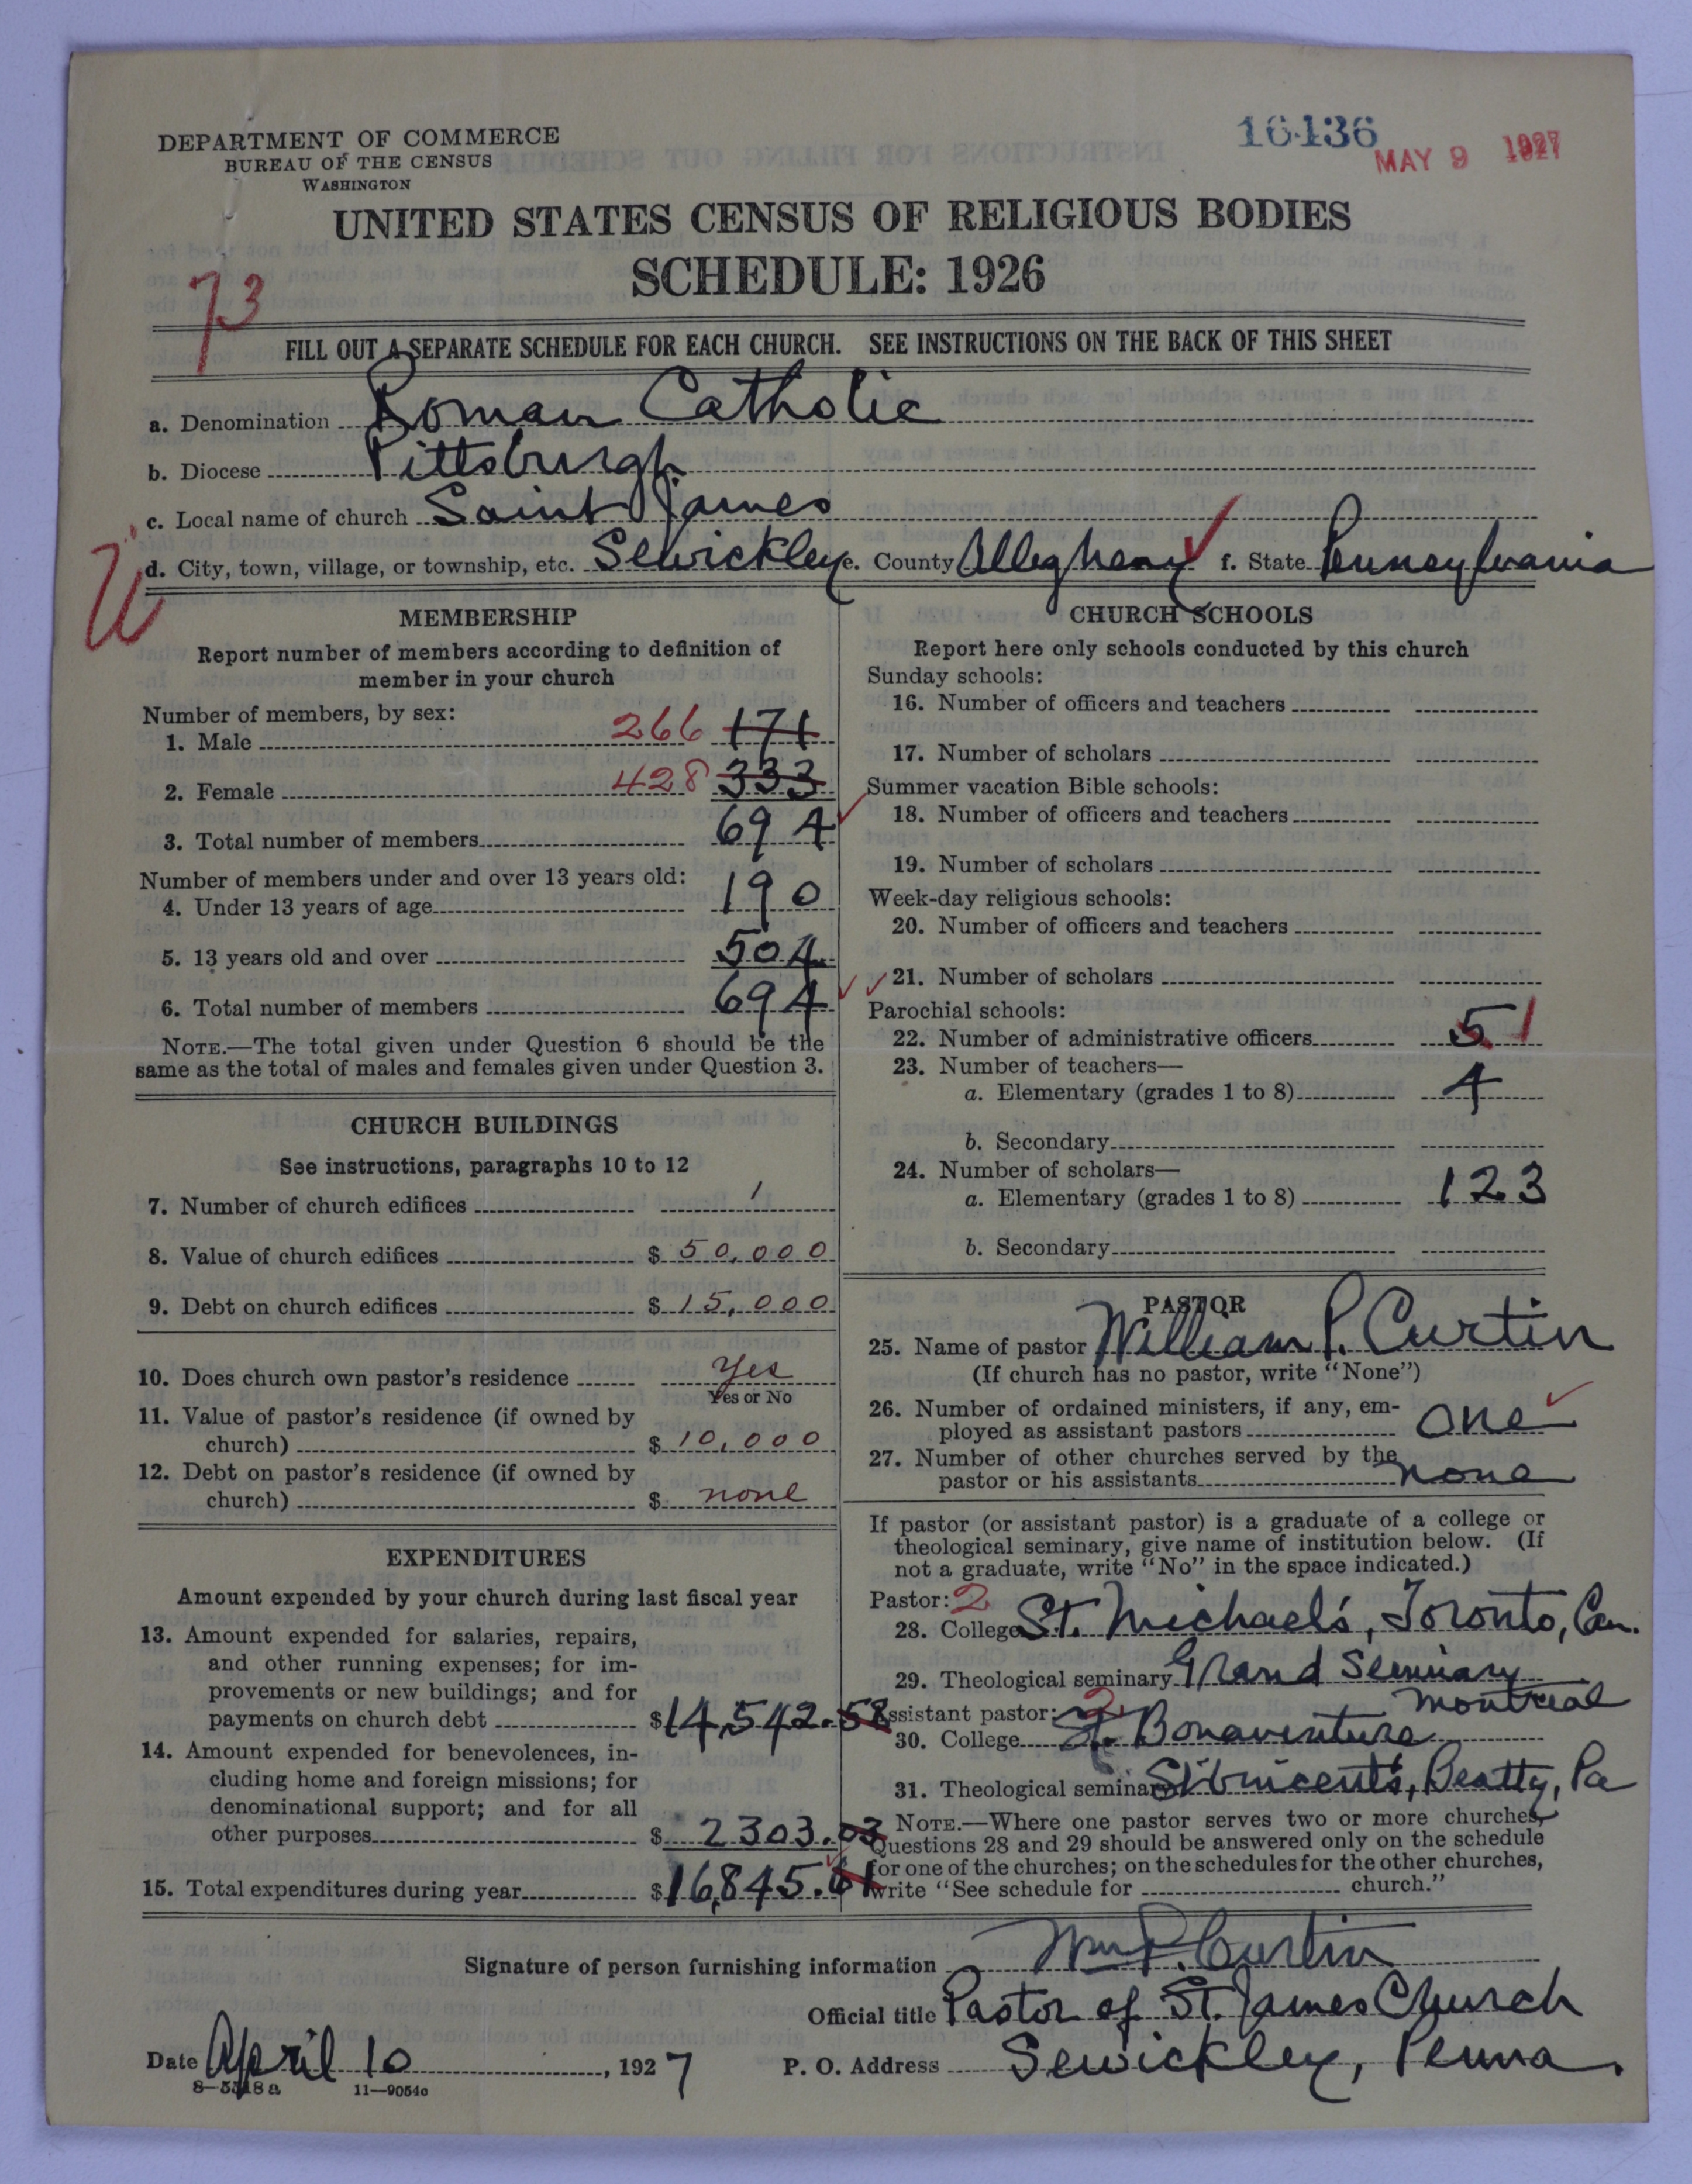 DEPARTMENT OF COMMERCE
BUREAU OF THE CENSUS
WASHINGTON
16136
MAY 9 1927
UNITED STATES CENSUS OF RELIGIOUS BODIES
SCHEDULE: 1926
73
FILL OUT A SEPARATE SCHEDULE FOR EACH CHURCH. SEE INSTRUCTIONS ON THE BACK OF THIS SHEET
a. Denomination Roman Catholic
b. Diocese Pittsburgh
c. Local name of church Saint James
d. City, town, village, or township, etc. Sewickley e. County Allegheny f. State Pennsylvania
MEMBERSHIP
Report number of members according to definition of
member in your church
Number of members, by sex:
1. Male 266 171
2. Female 428 333
3. Total number of members 694
Number of members under and over 13 years old:
4. Under 13 years of age 190
5. 13 years old and over 504
6. Total number of members 694
NOTE.—The total given under Question 6 should be the
same as the total of males and females given under Question 3.
CHURCH BUILDINGS
See instructions, paragraphs 10 to 12
7. Number of church edifices 1
8. Value of church edifices $ 50,000
9. Debt on church edifices $ 15,000
10. Does church own pastor's residence Yes
Yes or No
11. Value of pastor's residence (if owned by
church) $ 10,000
12. Debt on pastor's residence (if owned by
church) $ none
EXPENDITURES
Amount expended by your church during last fiscal year
13. Amount expended for salaries, repairs,
and other running expenses; for im-
provements or new buildings; and for
payments on church debt $14,542.58
14. Amount expended for benevolences, in-
cluding home and foreign missions; for
denominational support; and for all
other purposes $ 2303.03
15. Total expenditures during year $16,845.61
CHURCH SCHOOLS
Report here only schools conducted by this church
Sunday schools:
16. Number of officers and teachers
17. Number of scholars
Summer vacation Bible schools:
18. Number of officers and teachers
19. Number of scholars
Week-day religious schools:
20. Number of officers and teachers
21. Number of scholars
Parochial schools:
22. Number of administrative officers 5 1
23. Number of teachers—
a. Elementary (grades 1 to 8) 4
b. Secondary
24. Number of scholars—
a. Elementary (grades 1 to 8) 123
b. Secondary
PASTOR
25. Name of pastor William P. Curtin
(If church has no pastor, write "None")
26. Number of ordained ministers, if any, em-
ployed as assistant pastors one
27. Number of other churches served by the
pastor or his assistants none
If pastor (or assistant pastor) is a graduate of a college or
theological seminary, give name of institution below. (If
not a graduate, write "No" in the space indicated.)
Pastor: 2
28. College St. Michael's, Toronto, Can.
29. Theological seminary Grand Seminary
Montreal
Assistant pastor: 2
30. College St. Bonaventure
31. Theological seminary St Vincent's, Beatty, Pa
NOTE.—Where one pastor serves two or more churches,
Questions 28 and 29 should be answered only on the schedule
for one of the churches; on the schedules for the other churches,
write "See schedule for church."
Signature of person furnishing information Wm P. Curtin
Official title Pastor of St. James Church
Date April 10, 1927 P. O. Address Sewickley, Penna.
8-5518a 11-9054c